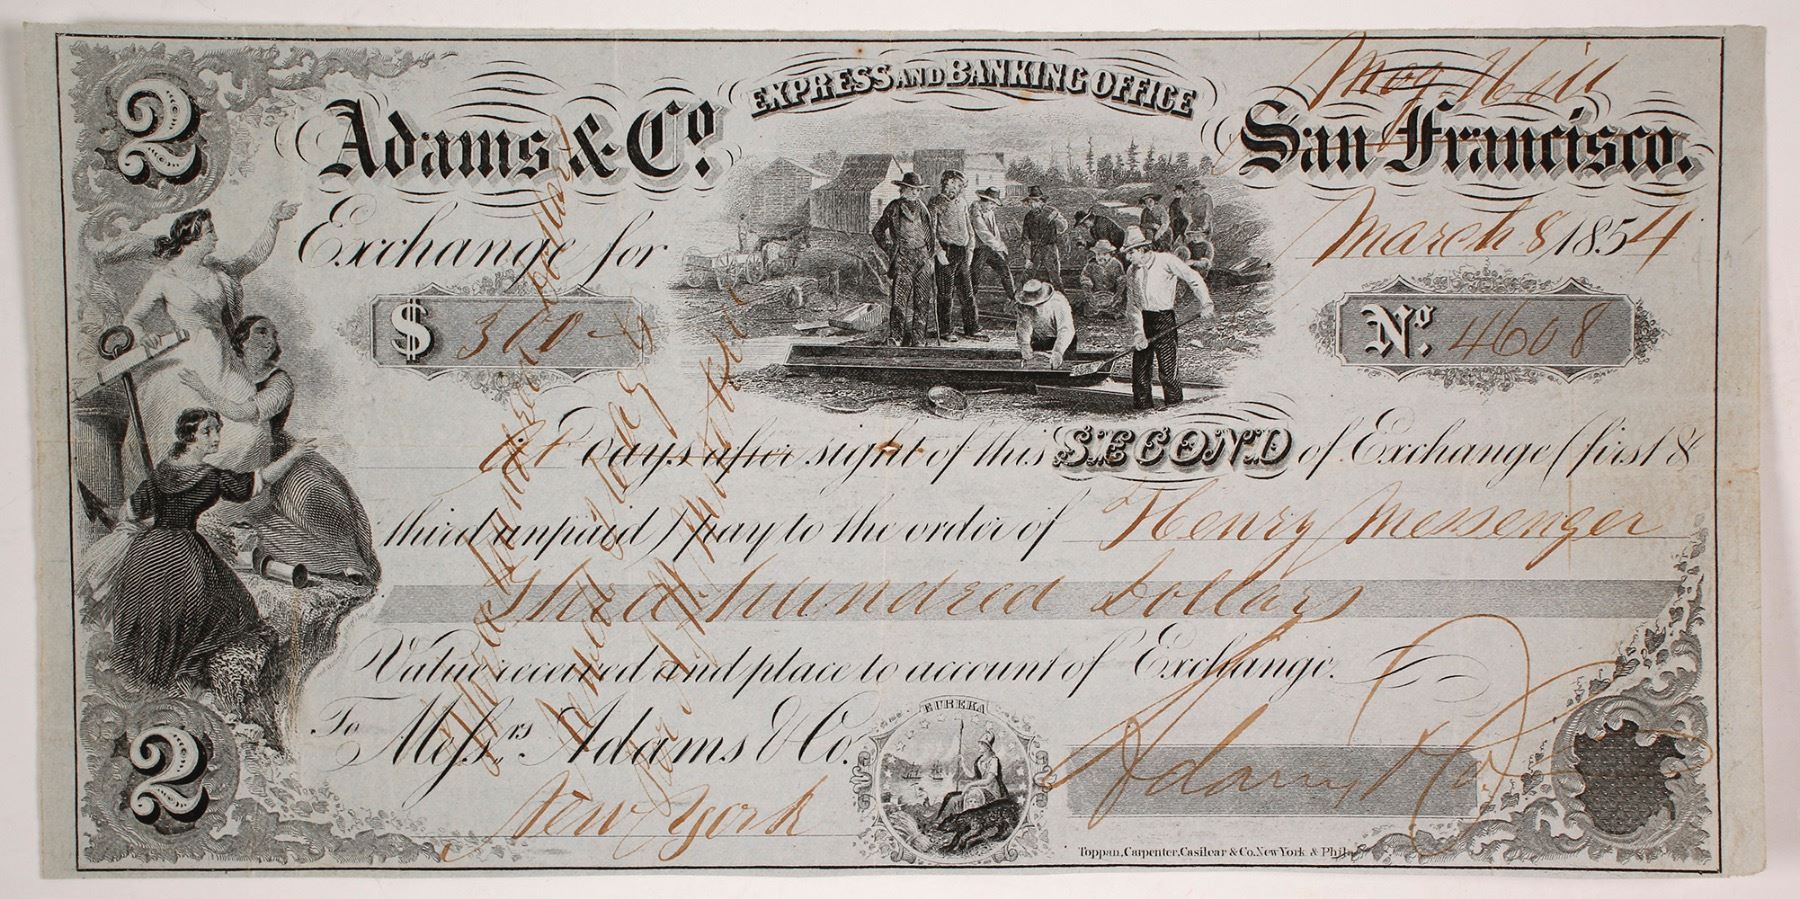 2
Adams & Co.
EXPRESS AND BANKING OFFICE
Moq Hill
San Francisco.
Exchange for
March 8 1854
$ 300
No. 4608
at Days after sight of this SECOND of Exchange (first &
third unpaid) pay to the order of Henry Messenger
Three hundred Dollars
Value received and place to account of Exchange.
To Messrs Adams & Co.
New York
EUREKA
Adams & Co
2
Toppan, Carpenter, Casilear & Co. New York & Phila